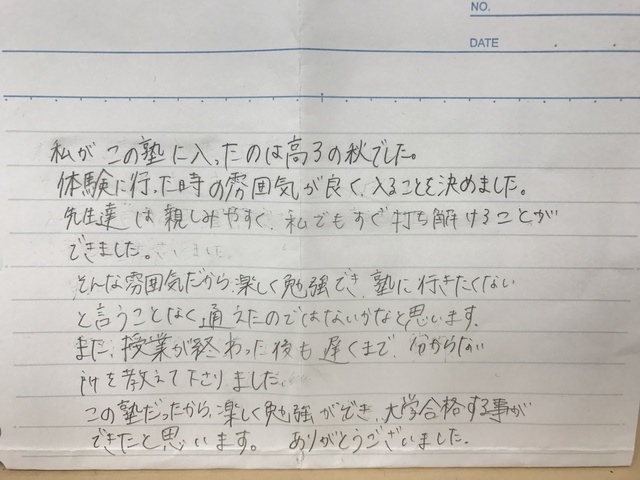 NO.
DATE
私がこの塾に入ったのは高3の秋でした。
体験に行った時の雰囲気が良く、入ることを決めました。
先生達は親しみやすく、私でもすぐ打ち解けることが
できました。
そんな雰囲気だから、楽しく勉強でき、塾に行きたくない
と言うことなく通えたのではないかなと思います。
また、授業が終わった後も遅くまで、分からない
所を教えて下さりました。
この塾だったから、楽しく勉強ができ、大学合格する事が
できたと思います。 ありがとうございました。